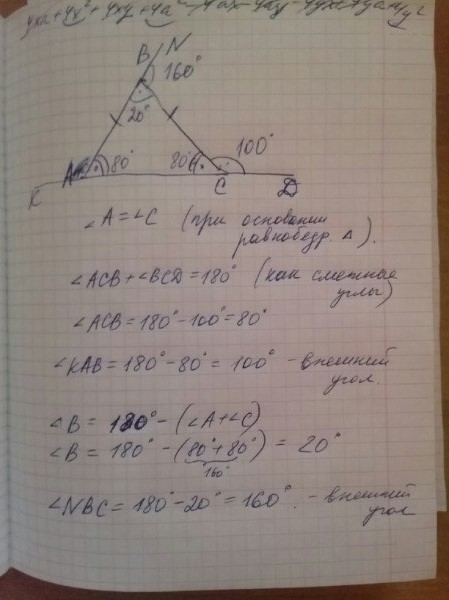 B N
160°
20°
A 80° 80° 100°
K C D
∠A = ∠C (при основании
равнобедр. △).
∠ACB + ∠BCD = 180° (как смежные
углы)
∠ACB = 180° - 100° = 80°
∠KAB = 180° - 80° = 100° - внешний
угол.
∠B = 180° - (∠A + ∠C)
∠B = 180° - (80° + 80°) = 20°
160°
∠NBC = 180° - 20° = 160°. - внешний
угол